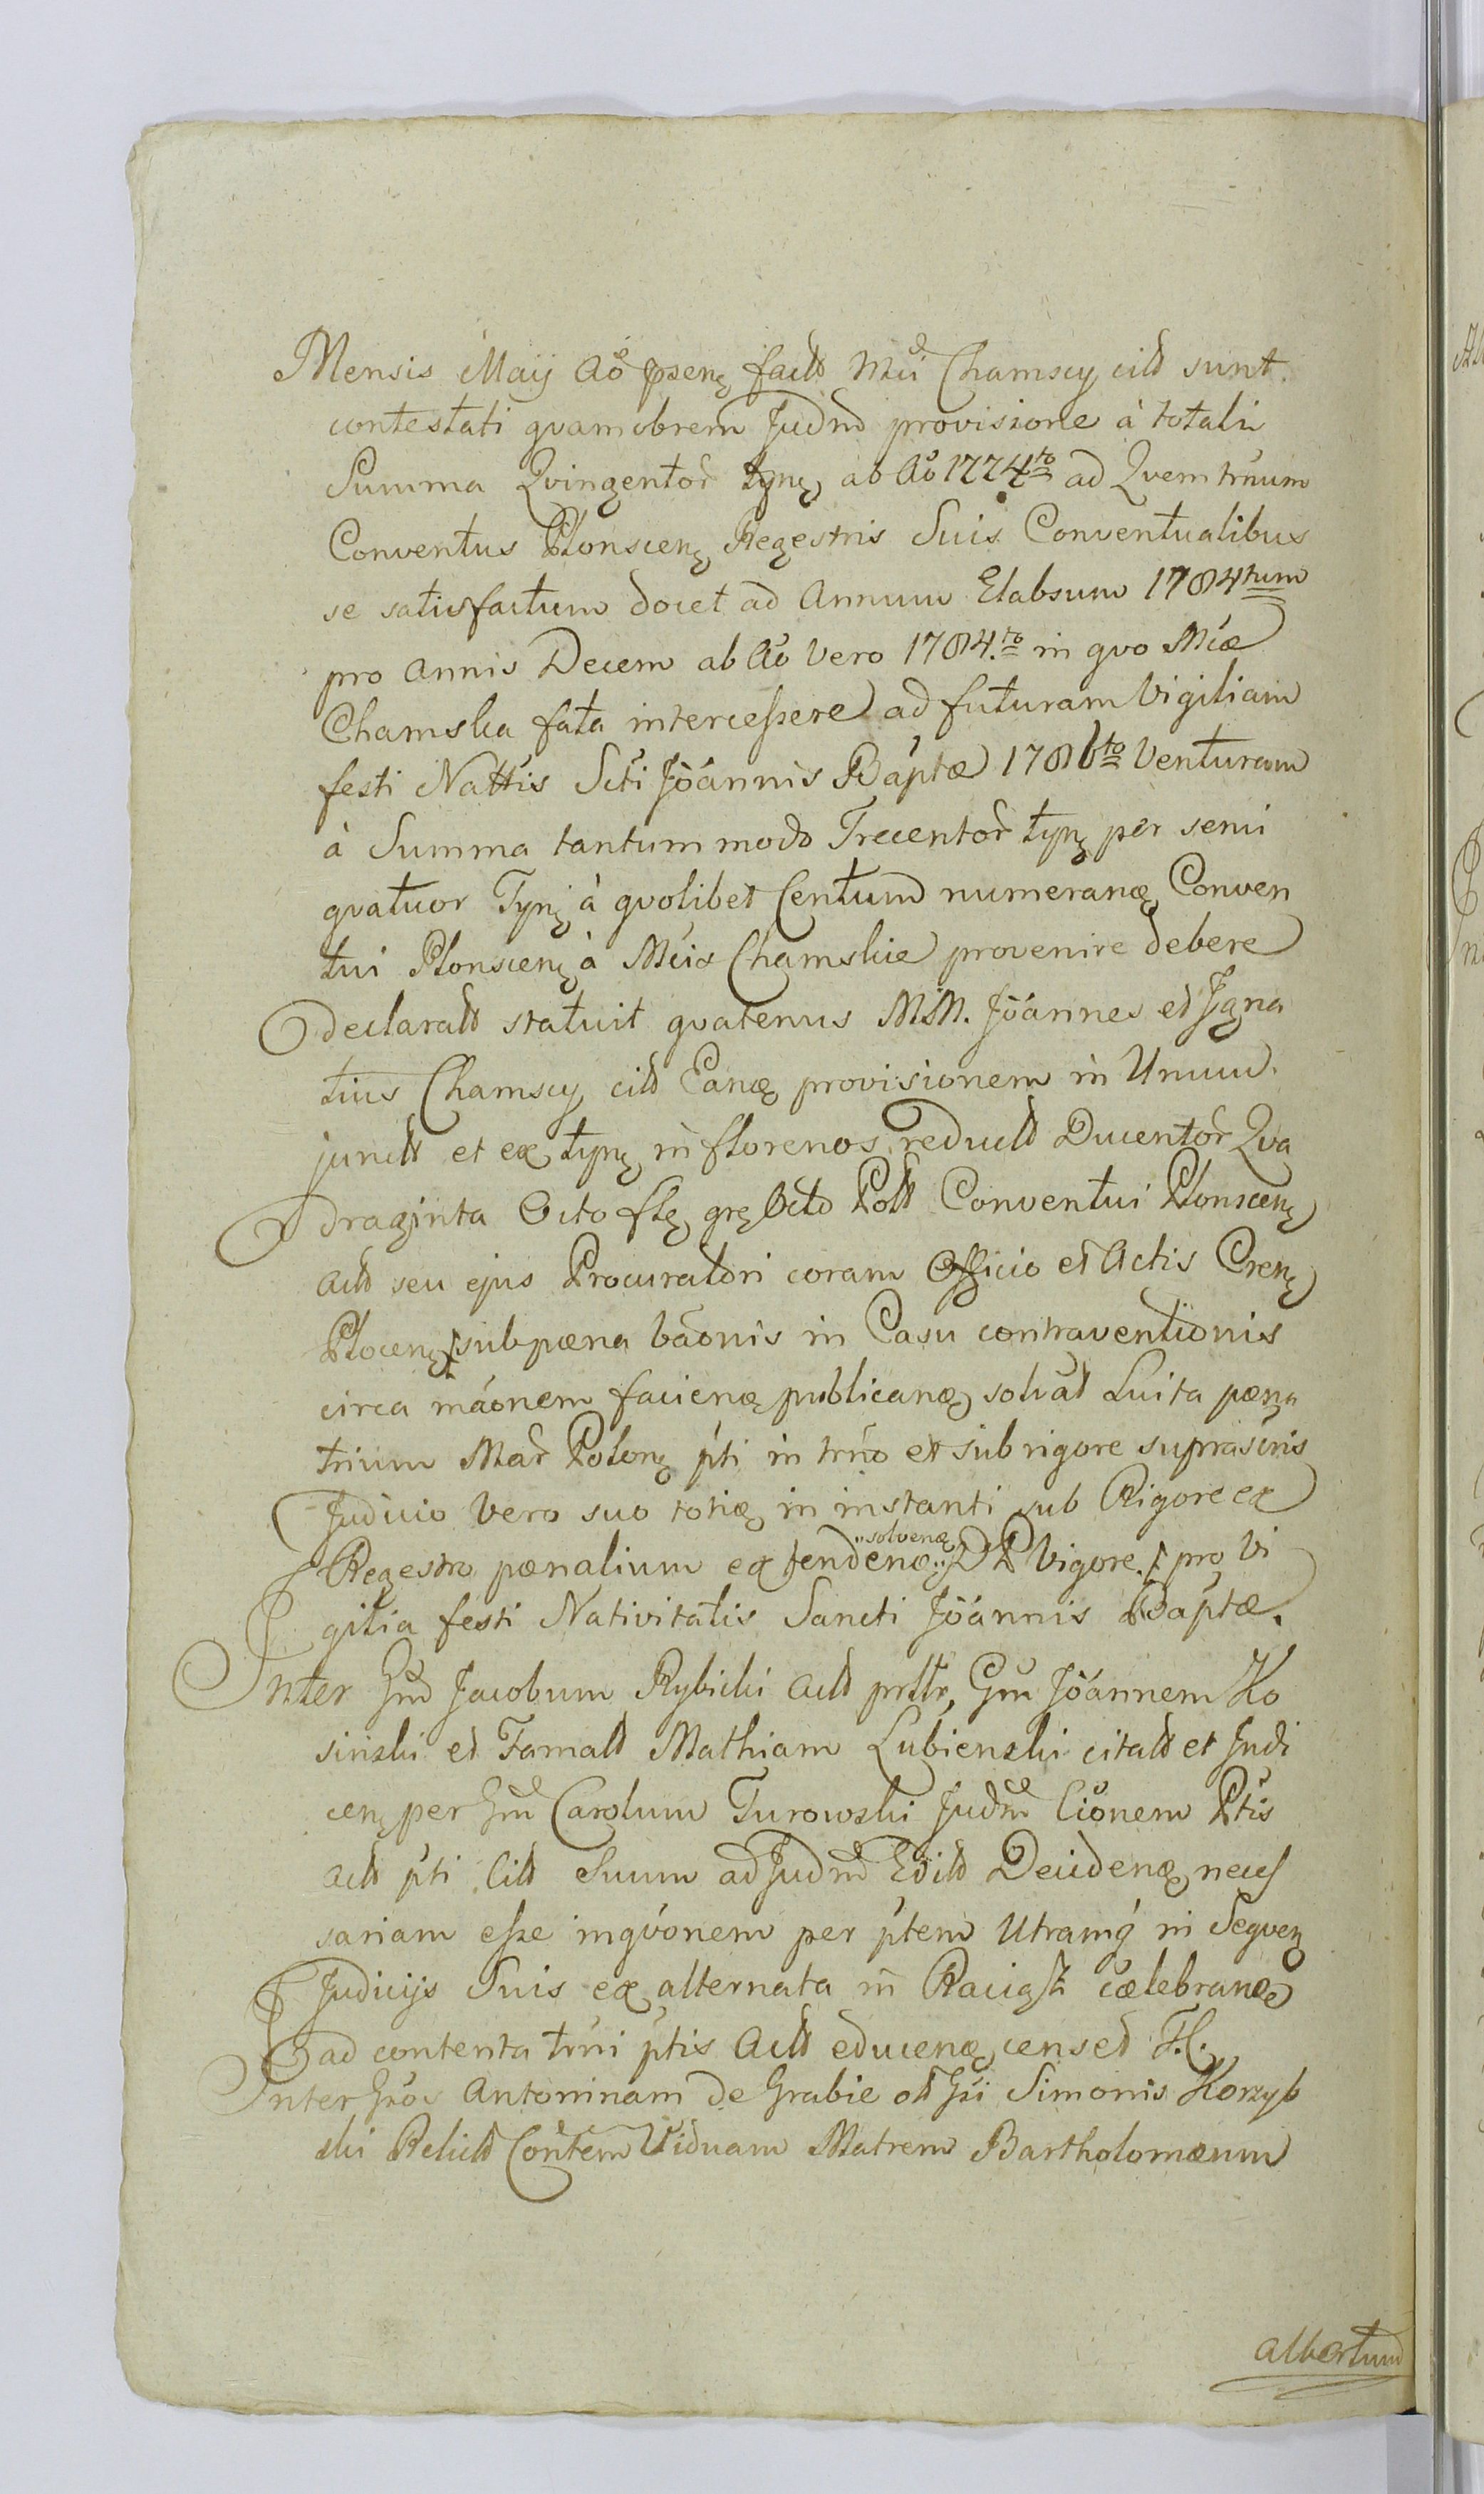 Mensis Maij Aō psenę factt Mci Chamscy citt sunt
contestati qvamobrem Judnd provisione à totali
Summa Qvingentor̃ tynę ab Aō 1774to ad Qvem trnum
Conventus Płonscenę Regestris Suis Conventualibus
se satisfactum docet ad Annum Elabsum 1784tum
pro Annis Decem ab Aō Vero 1784.to in qvo Mcæ
Chamska fata intercessere ad futuram Vigiliam
festi Nattis Scti Joannis Baptæ 1786to Venturam
à Summa tantum modo Trecentor̃ tynę per semi
qvatuor Tynę à qvolibet Centum numeranę Conven
tui Płonscenę à Mcis Chamskie provenire debere
declaratt statuit qvatenus MM. Joannes et Igna
tius Chamscy citt Eanę provisionem in Unum
junctt et ex tynę in florenos reductt Ducentor̃ Qva
draginta Octo flę grę Octo Poltt Conventui Płonscenę
Actt seu ejus Procuratori coram Officio et Actis Crenę
Płocenę sub pœna bāonis in Casu contraventionis
circa māonem facienę publicanę solvat Luita pœna
trium Mar̃ Polonę pti in trno et sub rigore suprascris
Judicio Vero suo totię in instanti sub Rigore ex
Regestro pœnalium extendenę "solvenę" DD Vigore pro Vi
gilia festi Nativitatis Sancti Joannis Baptæ.
Inter Gnd Jacobum Rybicki Actt prttr, Gm Joannem Ko
sinski et Famatt Mathiam Lubienski citatt et Judi
cenę per Gm Carolum Turowski Judm Cionem Ptis
Actt pti Citt Suum ad Judm Editt Decidenę neces
sariam esse inqvonem per ptem Utramq́ in Seqvenę
Judicijs Suis ex alternata in Raciąsk cælebranę
ad contenta trni ptis Actt educenę censet H.
Inter Gsos Antoninam de Grabie olt Gsi Simonis Korzyb
ski Relictt Contem Viduam Matrem Bartholomæum
Albertum